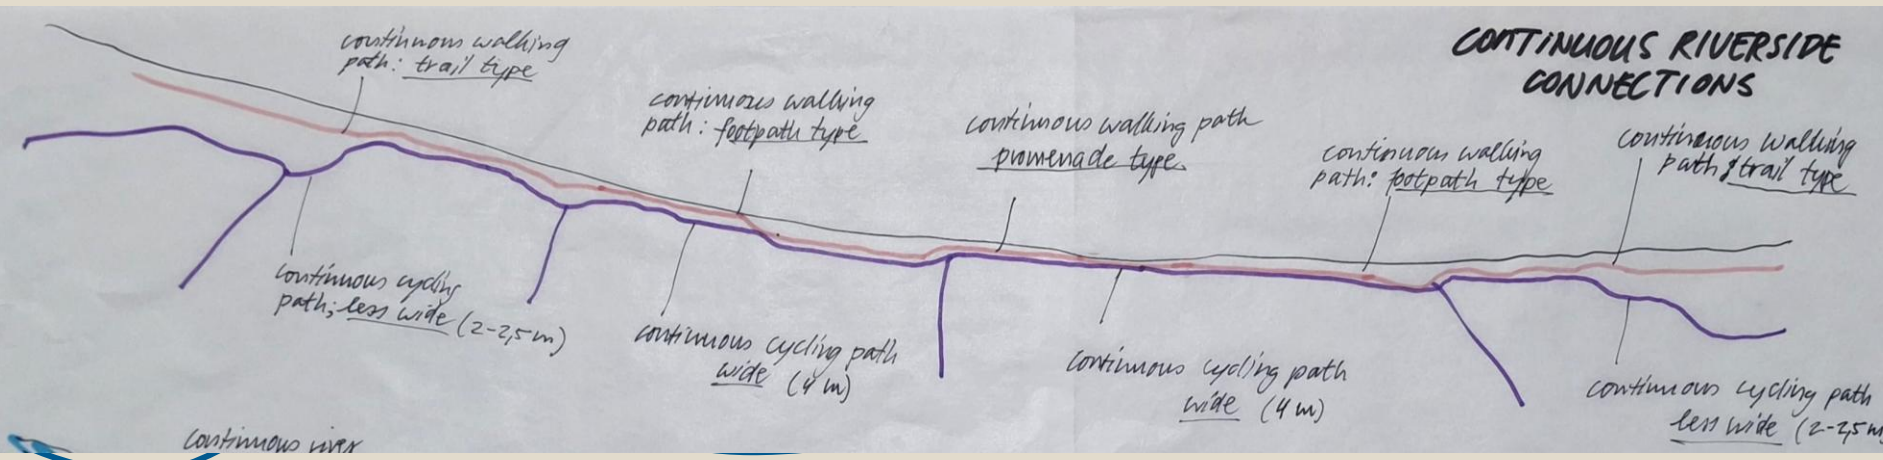 CONTINUOUS RIVERSIDE
CONNECTIONS
continuous walking
path: trail type
continuous walking
path: footpath type
continuous walking path
promenade type
continuous walking
path: footpath type
continuous walking
path: trail type
continuous cycling
path; less wide (2-2,5 m)
continuous cycling path
wide (4 m)
continuous cycling path
wide (4 m)
continuous cycling path
less wide (2-2,5 m
continuous river